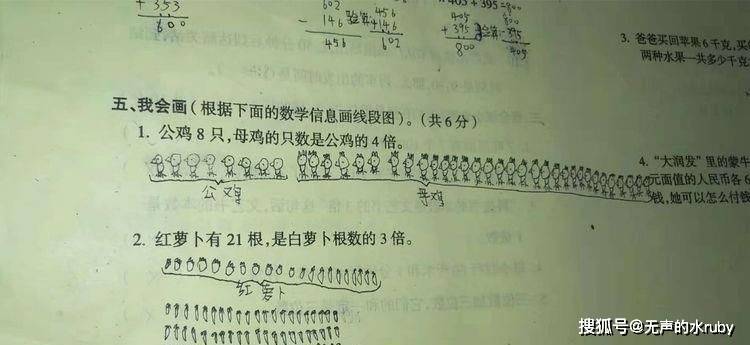 + 353
600
602
- 146
456
验算
456
+146
602
405 + 395 = 800
405
+ 395
800
验算
800
- 395
405
3. 爸爸买回苹果 6 千克，买
两种水果一共多少千克
五、我会画（根据下面的数学信息画线段图）。（共 6 分）
1. 公鸡 8 只，母鸡的只数是公鸡的 4 倍。
公鸡
母鸡
4. “大润发”里的蒙牛
元面值的人民币各 6
钱，她可以怎么付钱
2. 红萝卜有 21 根，是白萝卜根数的 3 倍。
红萝卜
搜狐号@无声的水ruby